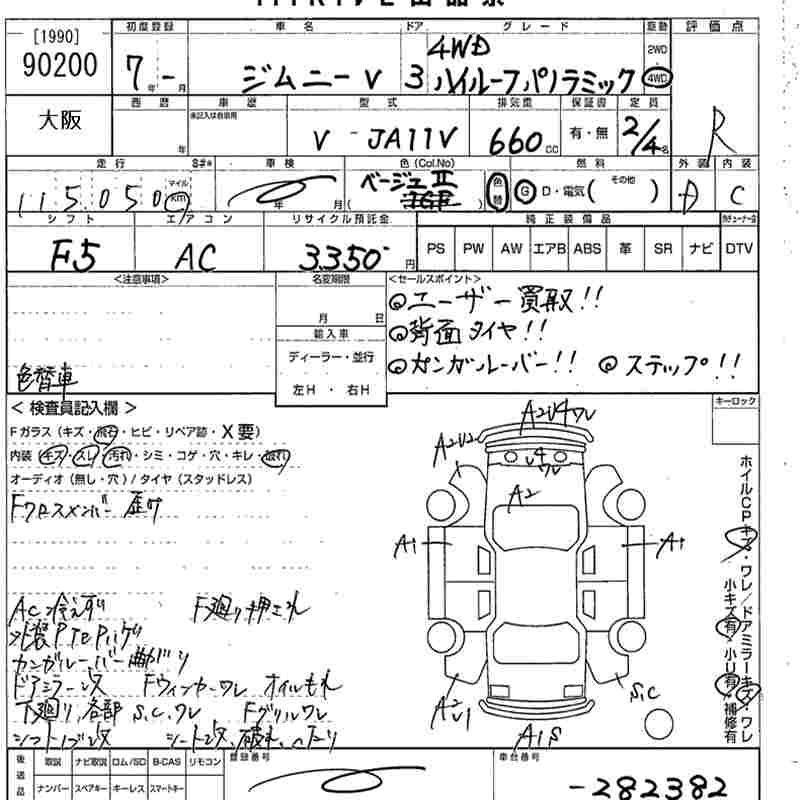 [1990]
90200
初度登録 車名 ドア グレード 駆動 評価点
7年-月 ジムニーV 3 4WD ハイルーフパノラミック 2WD 4WD R
大阪
西暦 車歴 型式 排気量 保証書 定員
年 月 未記入は自家用 V-JA11V 660cc 有・無 2/4名
走行 S#* 車検 色(Col.No) 燃料 外装 内装
115,050 マイル km 年 月 ベージュII ( ) 色替 G D・電気( その他 ) A C
シフト エアコン リサイクル預託金 純正装備品
F5 AC 3350円 PS PW AW エアB ABS 革 SR ナビ DTV
<注意事項> 名変期限 <セールスポイント>
月 日
◎ユーザー買取!!
輸入車
◎背面タイヤ!!
ディーラー・並行
◎カンガルーバー!! ◎ステップ!!
左H・右H
色替車
<検査員記入欄> キーロック
Fガラス(キズ・飛石・ヒビ・リペア跡・X要)
内装 キズ・スレ・汚れ・シミ・コゲ・穴・キレ・破れ
オーディオ(無し・穴)/タイヤ(スタッドレス)
Fクロスメンバー歪ミ
A2U4ワレ
A2U2
U4ワレ
A2
A1 A1
AC冷えず F廻り押され
カンガルーバー曲がり
ドアミラー改 Fウィンカーワレ オイルもれ
下廻り、各部S,C,ワレ Fグリルワレ
シフトノブ改 シート改、破れ、ヘタリ
A2U1
S,C
A1S
ホイルCPキズ・ワレ/ドアミラーキズ・ワレ
小キズ有・小U有・補修有
後送品 取説 ナビ取説 ロム/SD B-CAS リモコン 登録番号 車台番号
ナンバー スペアキー キーレス スマートキー -282382